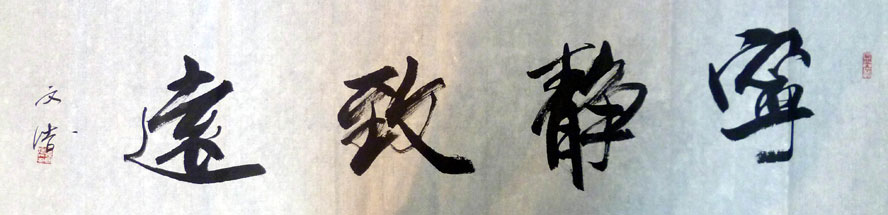 寧靜致遠
文清